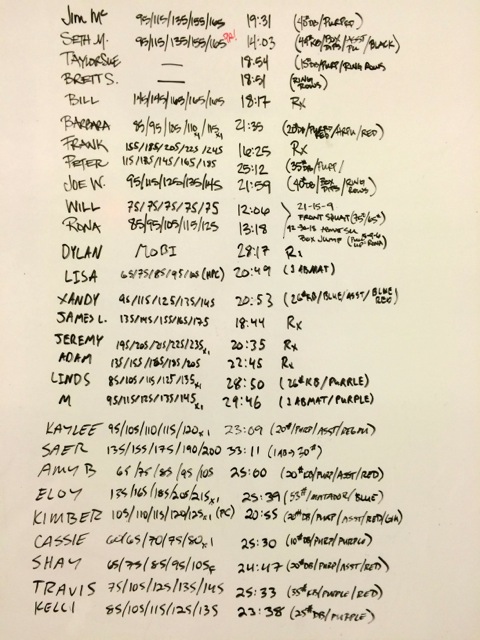 Jim Mc 95/115/135/155/165 19:31 (40#DB/PURPLE)
SETH M. 95/115/135/155/165 PR! 14:03 (44#KB/BOX DIPS/ASST PU/BLACK)
TAYLORSUE — 18:54 (15#DB/PURP/RING ROWS
BRETT S. — 18:51 (RING ROWS)
BILL 145/145/165/165/165 18:17 Rx
BARBARA 85/95/105/110/115 21:35
FRANK 155/185/205/225/245 16:25 Rx
PETER 115/135/145/165/185 25:12 (35#DB/PURP/
JOE W. 95/115/125/135/145 21:59 (40#DB/BOX DIPS/RING ROWS)
WILL 75/75/75/75/75 12:06 21-15-9
RONA 85/95/105/115/125 13:18 FRONT SQUAT (75#/65#)
BOX JUMP
DYLAN MOBI 28:17 Rx
LISA 65/75/85/95/105 (HPC) 20:49 (2 ABMAT)
XANDY 95/115/125/135/145 20:53 (26#KB/BLUE/ASST/BLUE RED)
JAMES L. 135/145/155/165/175 18:44 Rx
JEREMY 195/205/215/225/235x1 20:35 Rx
ADAM 135/155/185/195/205 22:45 Rx
LINDS 85/105/115/125/135x1 28:50 (26#KB/PURPLE)
M 95/115/125/135/145x1 29:46 (2 ABMAT/PURPLE)
KAYLEE 95/105/110/115/120x1 23:09 (20#/PURP/ASST/RED)
SAER 135/155/175/190/200 33:11
AMY B 65/75/85/95/105 25:00 (20#DB/PURP/ASST/RED)
ELOY 135/165/185/205/215x1 25:39 (53#/MATADOR/BLUE)
KIMBER 105/110/115/120/125x1 (PC) 20:55 (20#DB/PURP/ASST/RED/GRN)
CASSIE 60/65/70/75/80x1 25:30 (10#DB/PURP/PURPLE)
SHAY 65/75/85/95/105F 24:47 (20#DB/PURP/ASST/RED)
TRAVIS 75/105/125/135/145 25:33 (35#KB/PURPLE/RED)
KELLI 85/105/115/125/135 23:38 (25#DB/PURPLE)